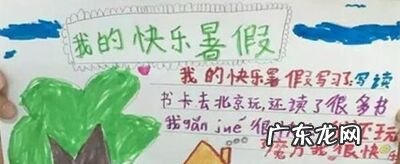 我的快乐暑假
我的快乐暑假写了写读
书卡去北京玩,还读了很多书
我gǎn jué很 还玩
魔方我很快
广东龙网